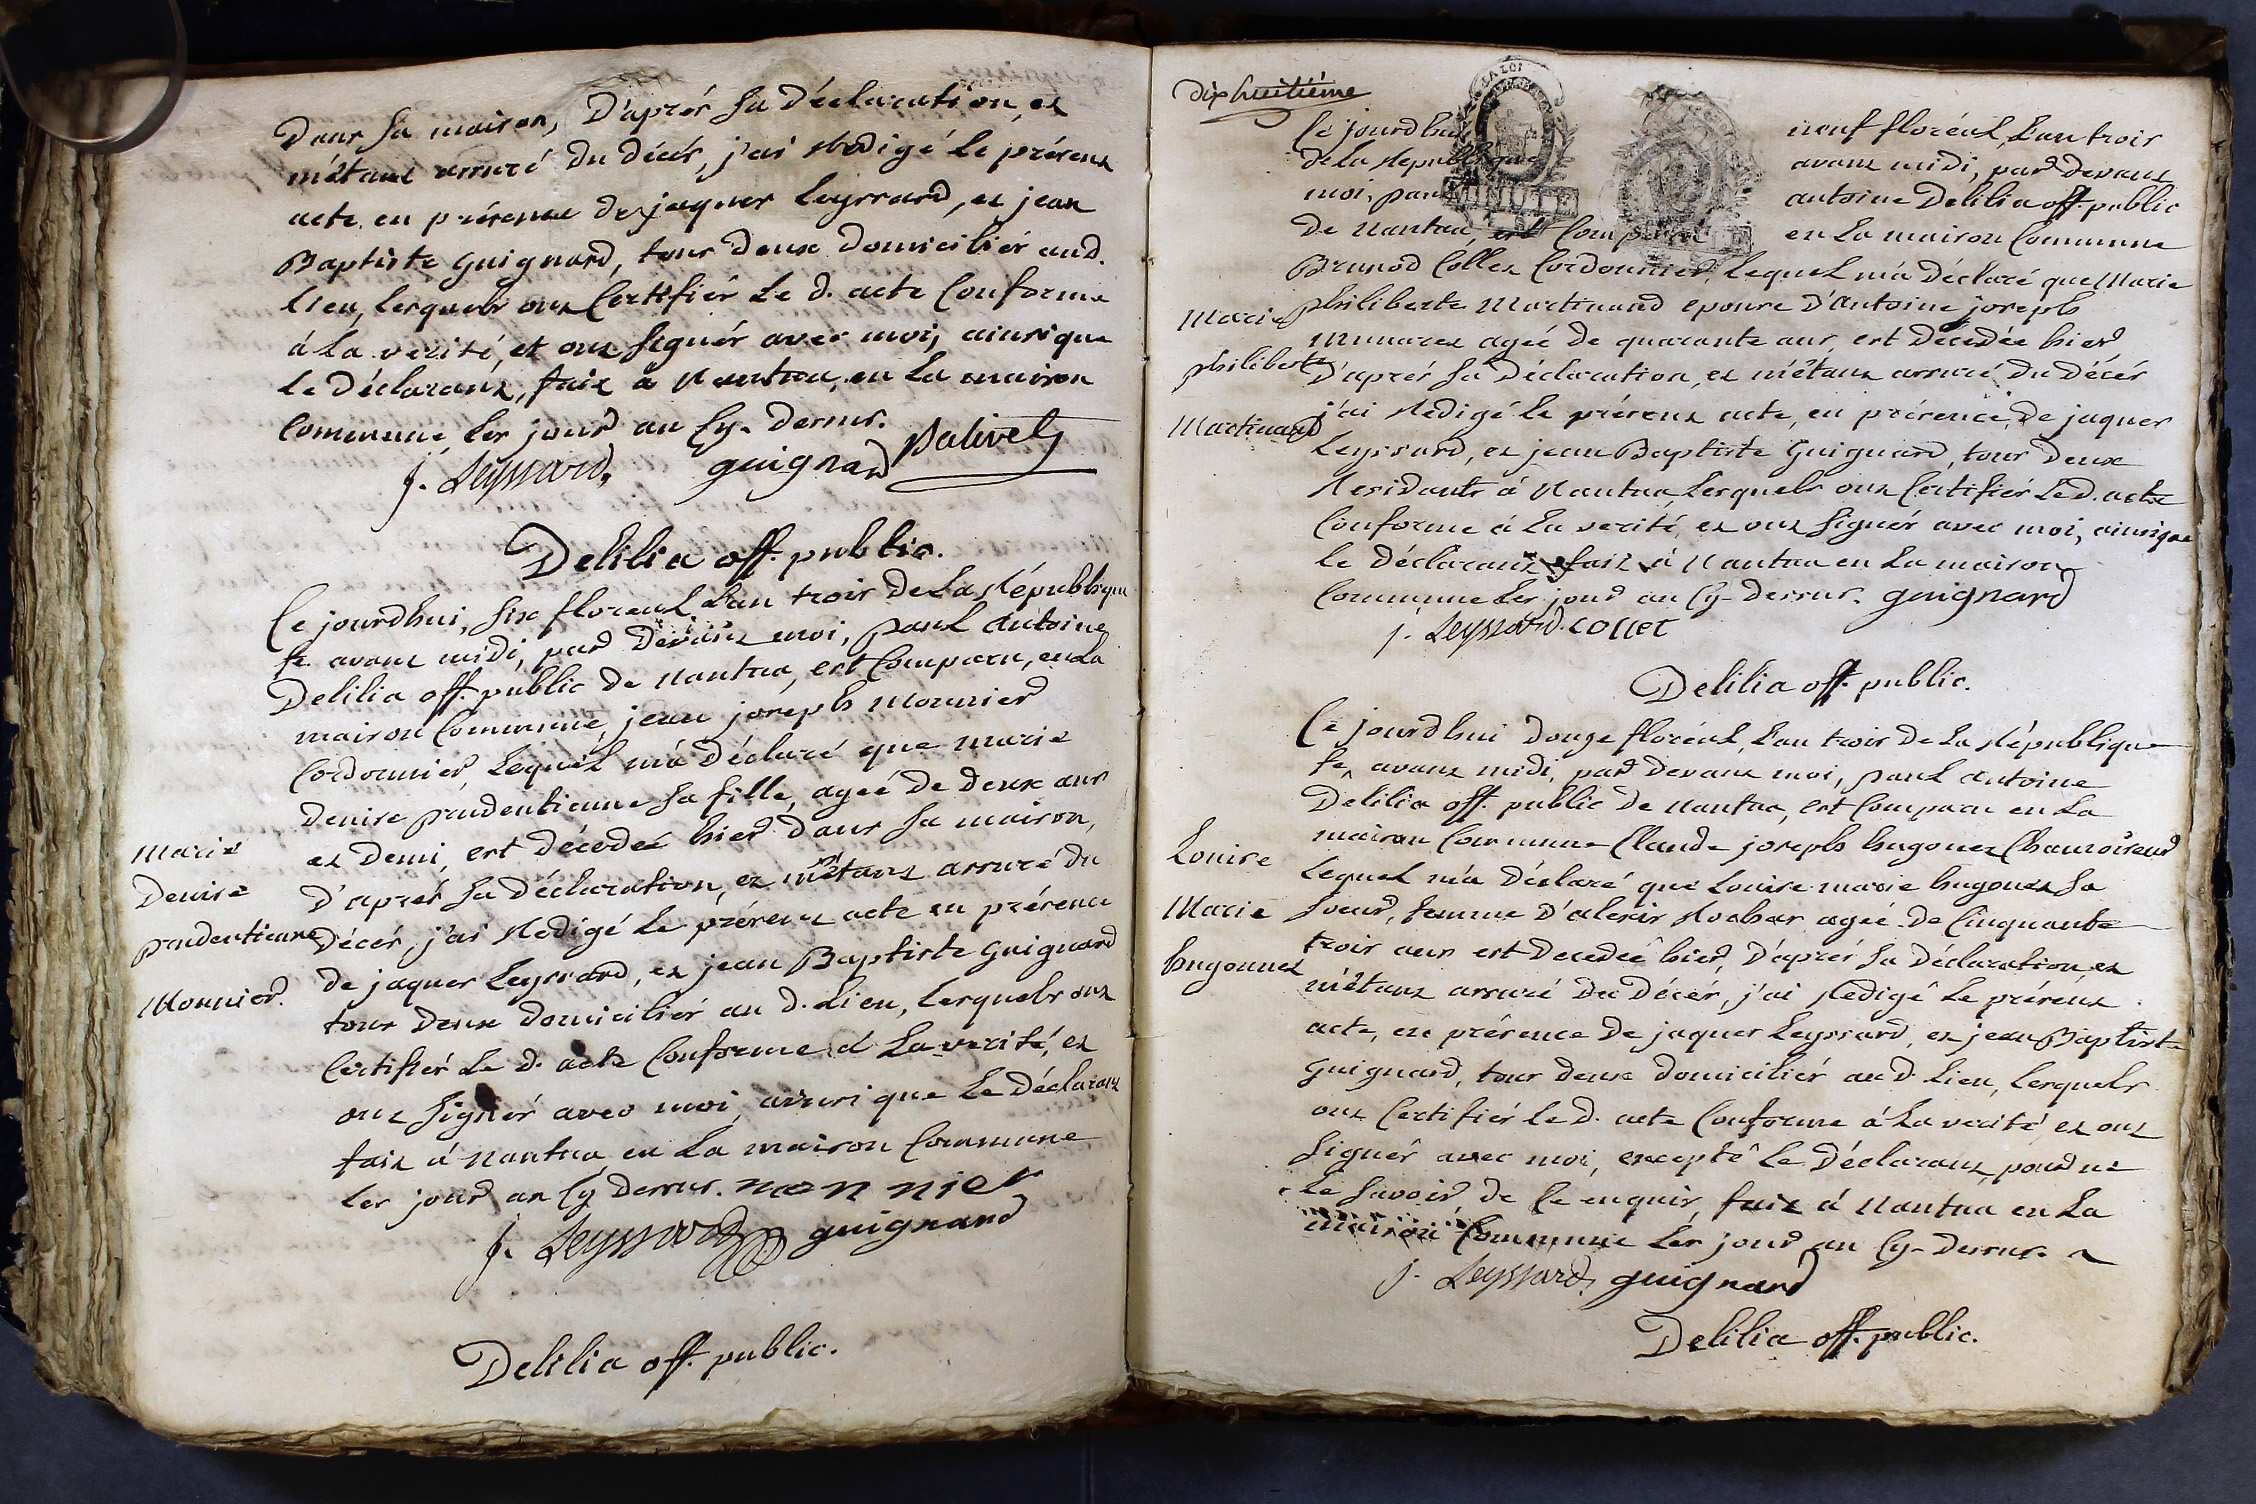 Dans sa maison, D'après sa Déclaration, et
m'étant assuré du décès, j'ai Redigé le présent
acte en présence de jaques Leyssard, et jean
Baptiste Guignard, tous deux domiciliés aud.
lieu, lesquels ont Certifiés le d. acte Conforme
á La verité, et ont signés avec moi, ainsi que
le Déclarant, fait á Nantua, en La maison
Commune, les jour et an Cy-dessus.
j. Leyssard, guignard palivet
Delilia off. public.
Ce jourdhui, six floreal L'an trois de La République
fe. avant midi, par devant moi, paul Antoine
Delilia off. public de Nantua, est Comparu, en La
maison Commune, jean joseph Monnier
Cordonnier, Lequel m'a Déclaré que marie
denise prudentienne sa fille, ageé de deux ans
et demi, est décedeé hier dans sa maison,
Marie
Denise
prudentienne
Monnier.
D'après sa Déclaration, et m'étant assuré du
Décès, j'ai Redigé le présent acte en présence
de jaques Leyssard, et jean Baptiste Guignard
tous Deux domiciliés au d. Lieu, lesquels ont
Certifiés Le d. acte Conforme á La verité, et
ont signés avec moi, ainsi que Le Déclarant
fait á Nantua en La maison Commune
les jour an Cy dessus. monnier
j. Leyssard guignard
Delilia off. public.
Dix huitième
Ce jourdhui neuf floréal, L'an trois
de La Republique avant midi, par devant
moi, paul antoine Delilia off. public
De Nantua, est Comparu en La maison Commune
Brunod Collet Cordonnier, Lequel m'a Déclaré que Marie
philiberte Martinand epouse D'Antoine joseph
Marie
philiberte
Martinand
agée de quarante ans, est Décedée hier,
D'après sa Déclaration, et m'étant assuré Du Décès
j'ai Redigé le présent acte, en présence, De jaques
Leyssard, et jean Baptiste Guignard, tous deux
Residants á Nantua, Lesquels ont Certifiés Le d. acte
Conforme á La verité, et ont signés avec moi, ainsique
le déclarant fait á Nantua en La maison
Commune Les jour an Cy-dessus. guignard
j. Leyssard. collet
Delilia off. public.
Ce jourdhui douze floréal, L'an trois de La République
fe, avant midi, par devant moi, paul Antoine
Delilia off. public de Nantua, est Comparu en La
maison Commune Claude joseph hugonet Chamoiseur
Louise
Marie
hugonnet
Lequel m'a Déclaré que Louise marie hugonet sa
soeur, femme D'alexis ageé de Cinquante
trois ans est Decedeé hier, D'après sa Déclaration, et
m'étant assuré Du Décès, j'ai Redigé le présent
acte, en présence De jaques Leyssard, et jean Baptiste
Guignard, tous deux domiciliés au d. lieu, lesquels
ont Certifiés le d. acte Conforme á La verité et ont
signés avec moi, excepté Le Déclarant, pour ne
le savoir, de Ce enquis, fait á Nantua en La
maison Commune Les jour an Cy-dessus.
j. Leyssard, guignard
Delilia off. public.
LA LOI
MINUTE